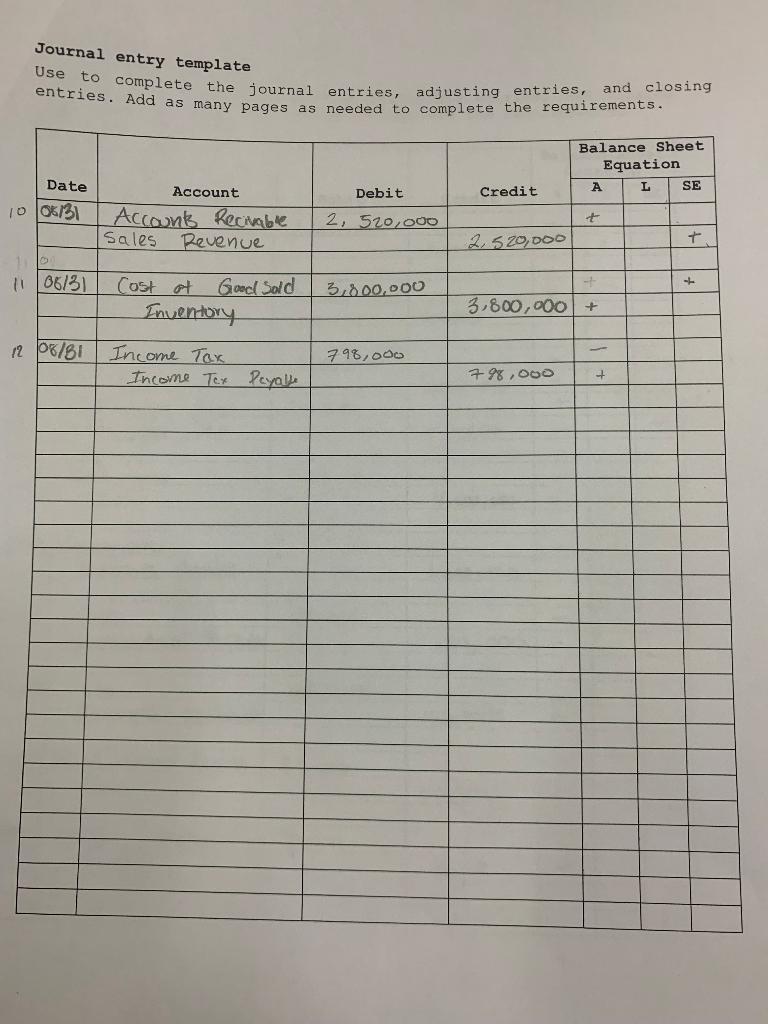 Journal entry template
Use to complete the journal entries, adjusting entries, and closing
entries. Add as many pages as needed to complete the requirements.
Balance Sheet
Equation
Date Account Debit Credit A L SE
10 08/31 Accounts Recivable 2, 520,000 +
Sales Revenue 2,520,000 +
11 08/31 Cost of Good Sold 3,800,000 + +
Inventory 3,800,000 +
12 08/31 Income Tax 798,000 −
Income Tax Payable 798,000 +